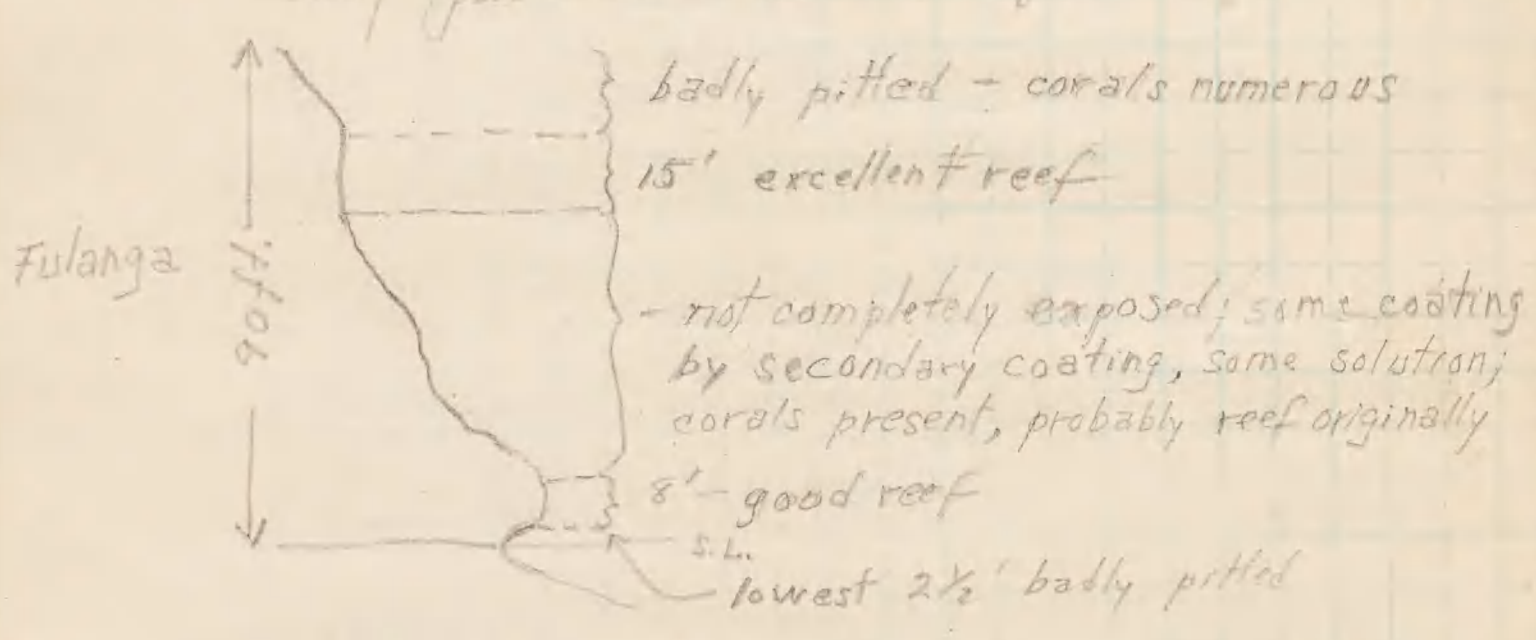 badly pitted - corals numerous
15' excellent reef
Fulanga
90 ft.
- not completely exposed; some coating
by secondary coating, some solution;
corals present, probably reef originally
8' - good reef
S.L.
lowest 2½' badly pitted